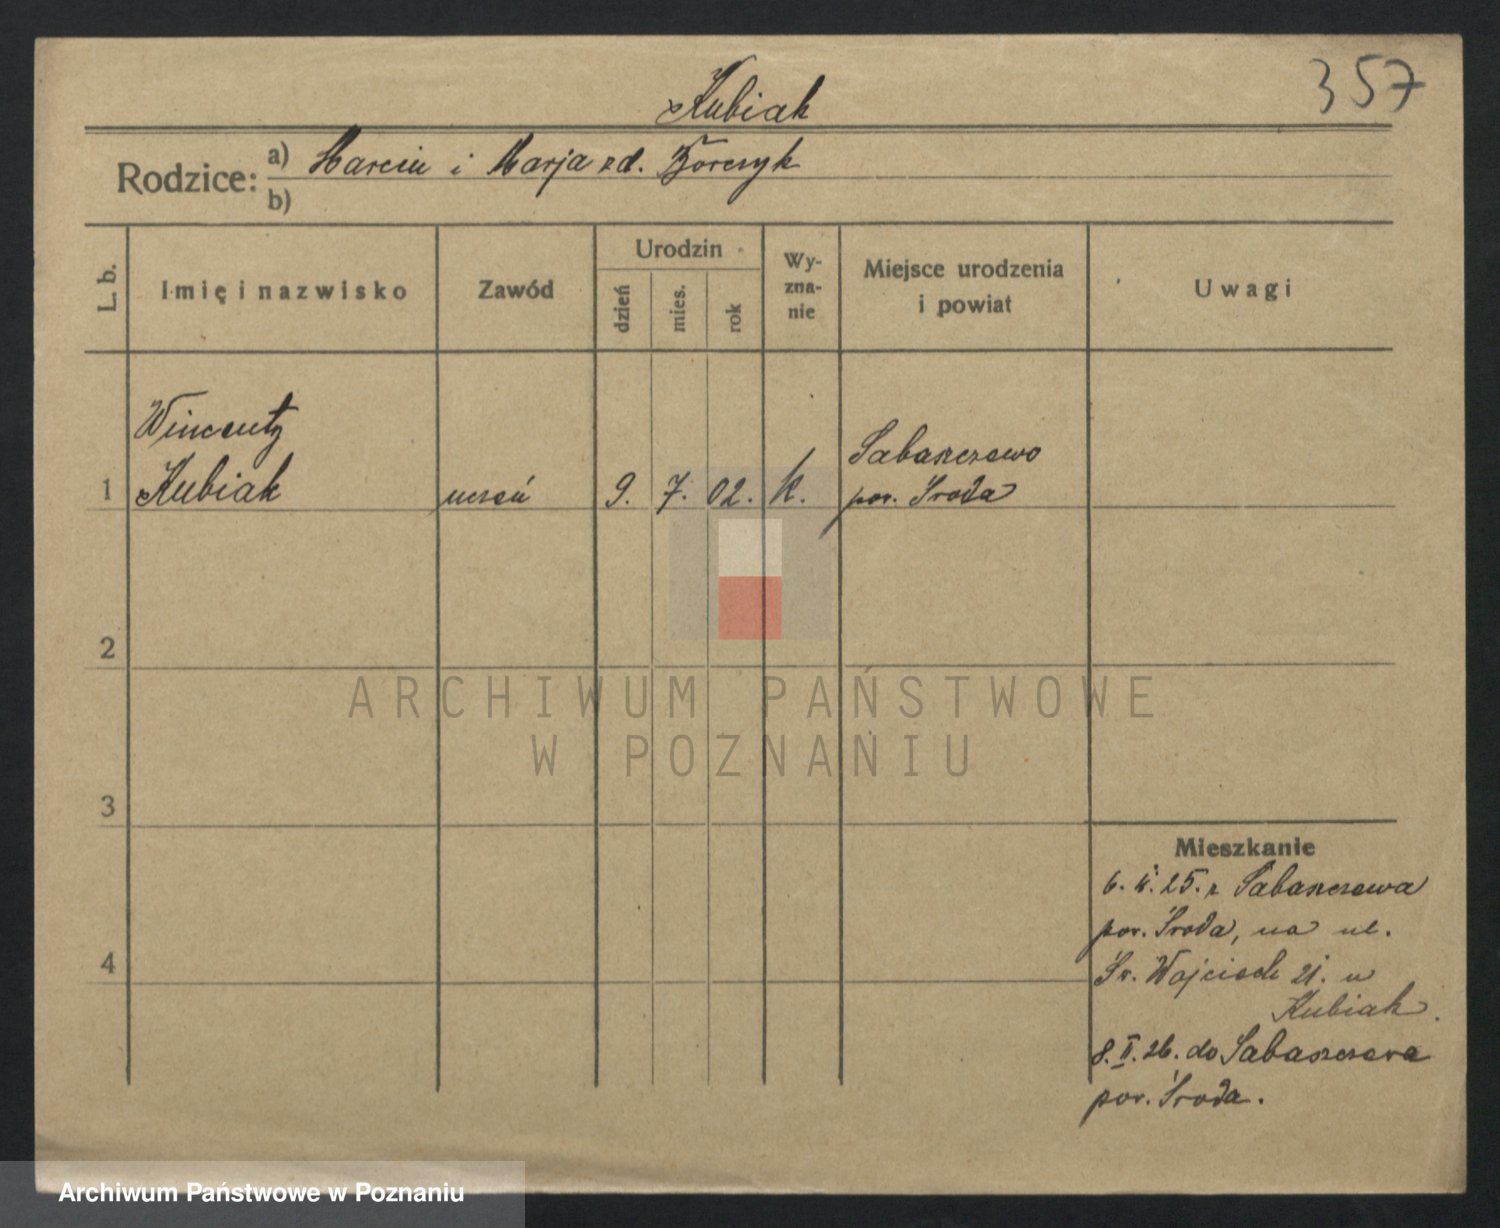 357
Kubiak
Rodzice: a) Marcin i Marja zd. Borczyk
b)
L. b.
Imię i nazwisko
Zawód
Urodzin
dzień
mies.
rok
Wy-
zna-
nie
Miejsce urodzenia
i powiat
Uwagi
Wincenty
1 Kubiak uczeń 9. 7. 02. k.
Sabaszczewo
pow. Środa
2
3
4
Mieszkanie
6. 25. z Sabaszczewa
pow. Środa, na ul.
Św. Wojciech 21. u
Kubiak.
8. II. 26. do Sabaszczewa
pow. Środa.
ARCHIWUM PAŃSTWOWE
W POZNANIU
Archiwum Państwowe w Poznaniu